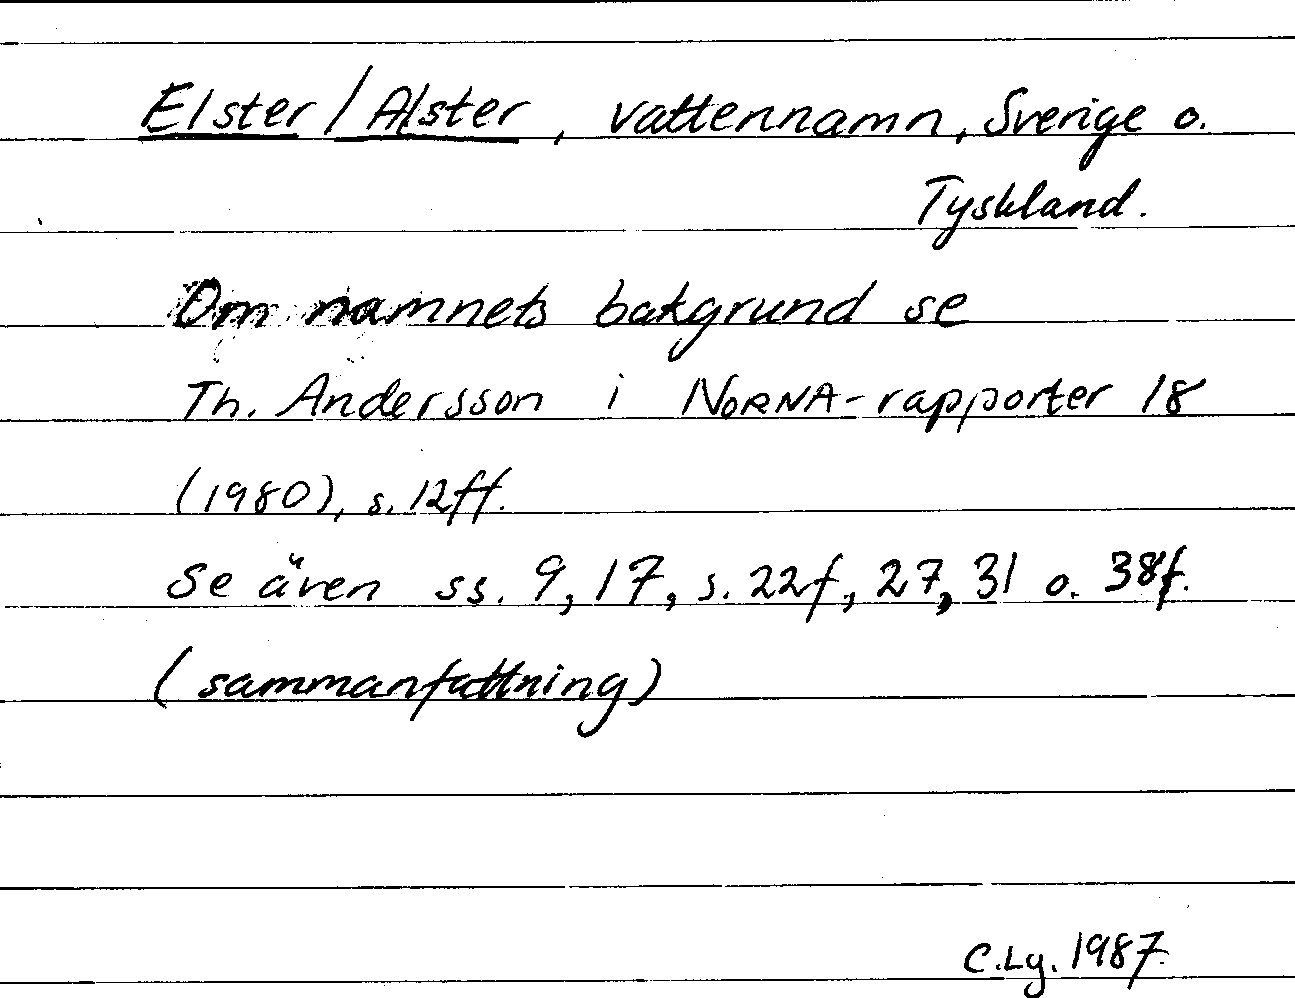 Elster / Alster, vattennamn, Sverige o.
Tyskland.
Om namnets bakgrund se
Th. Andersson i NORNA-rapporter 18
(1980), s. 12ff.
Se även ss. 9, 17, s. 22f, 27, 31 o. 38f.
(sammanfattning)
C.Ly. 1987.